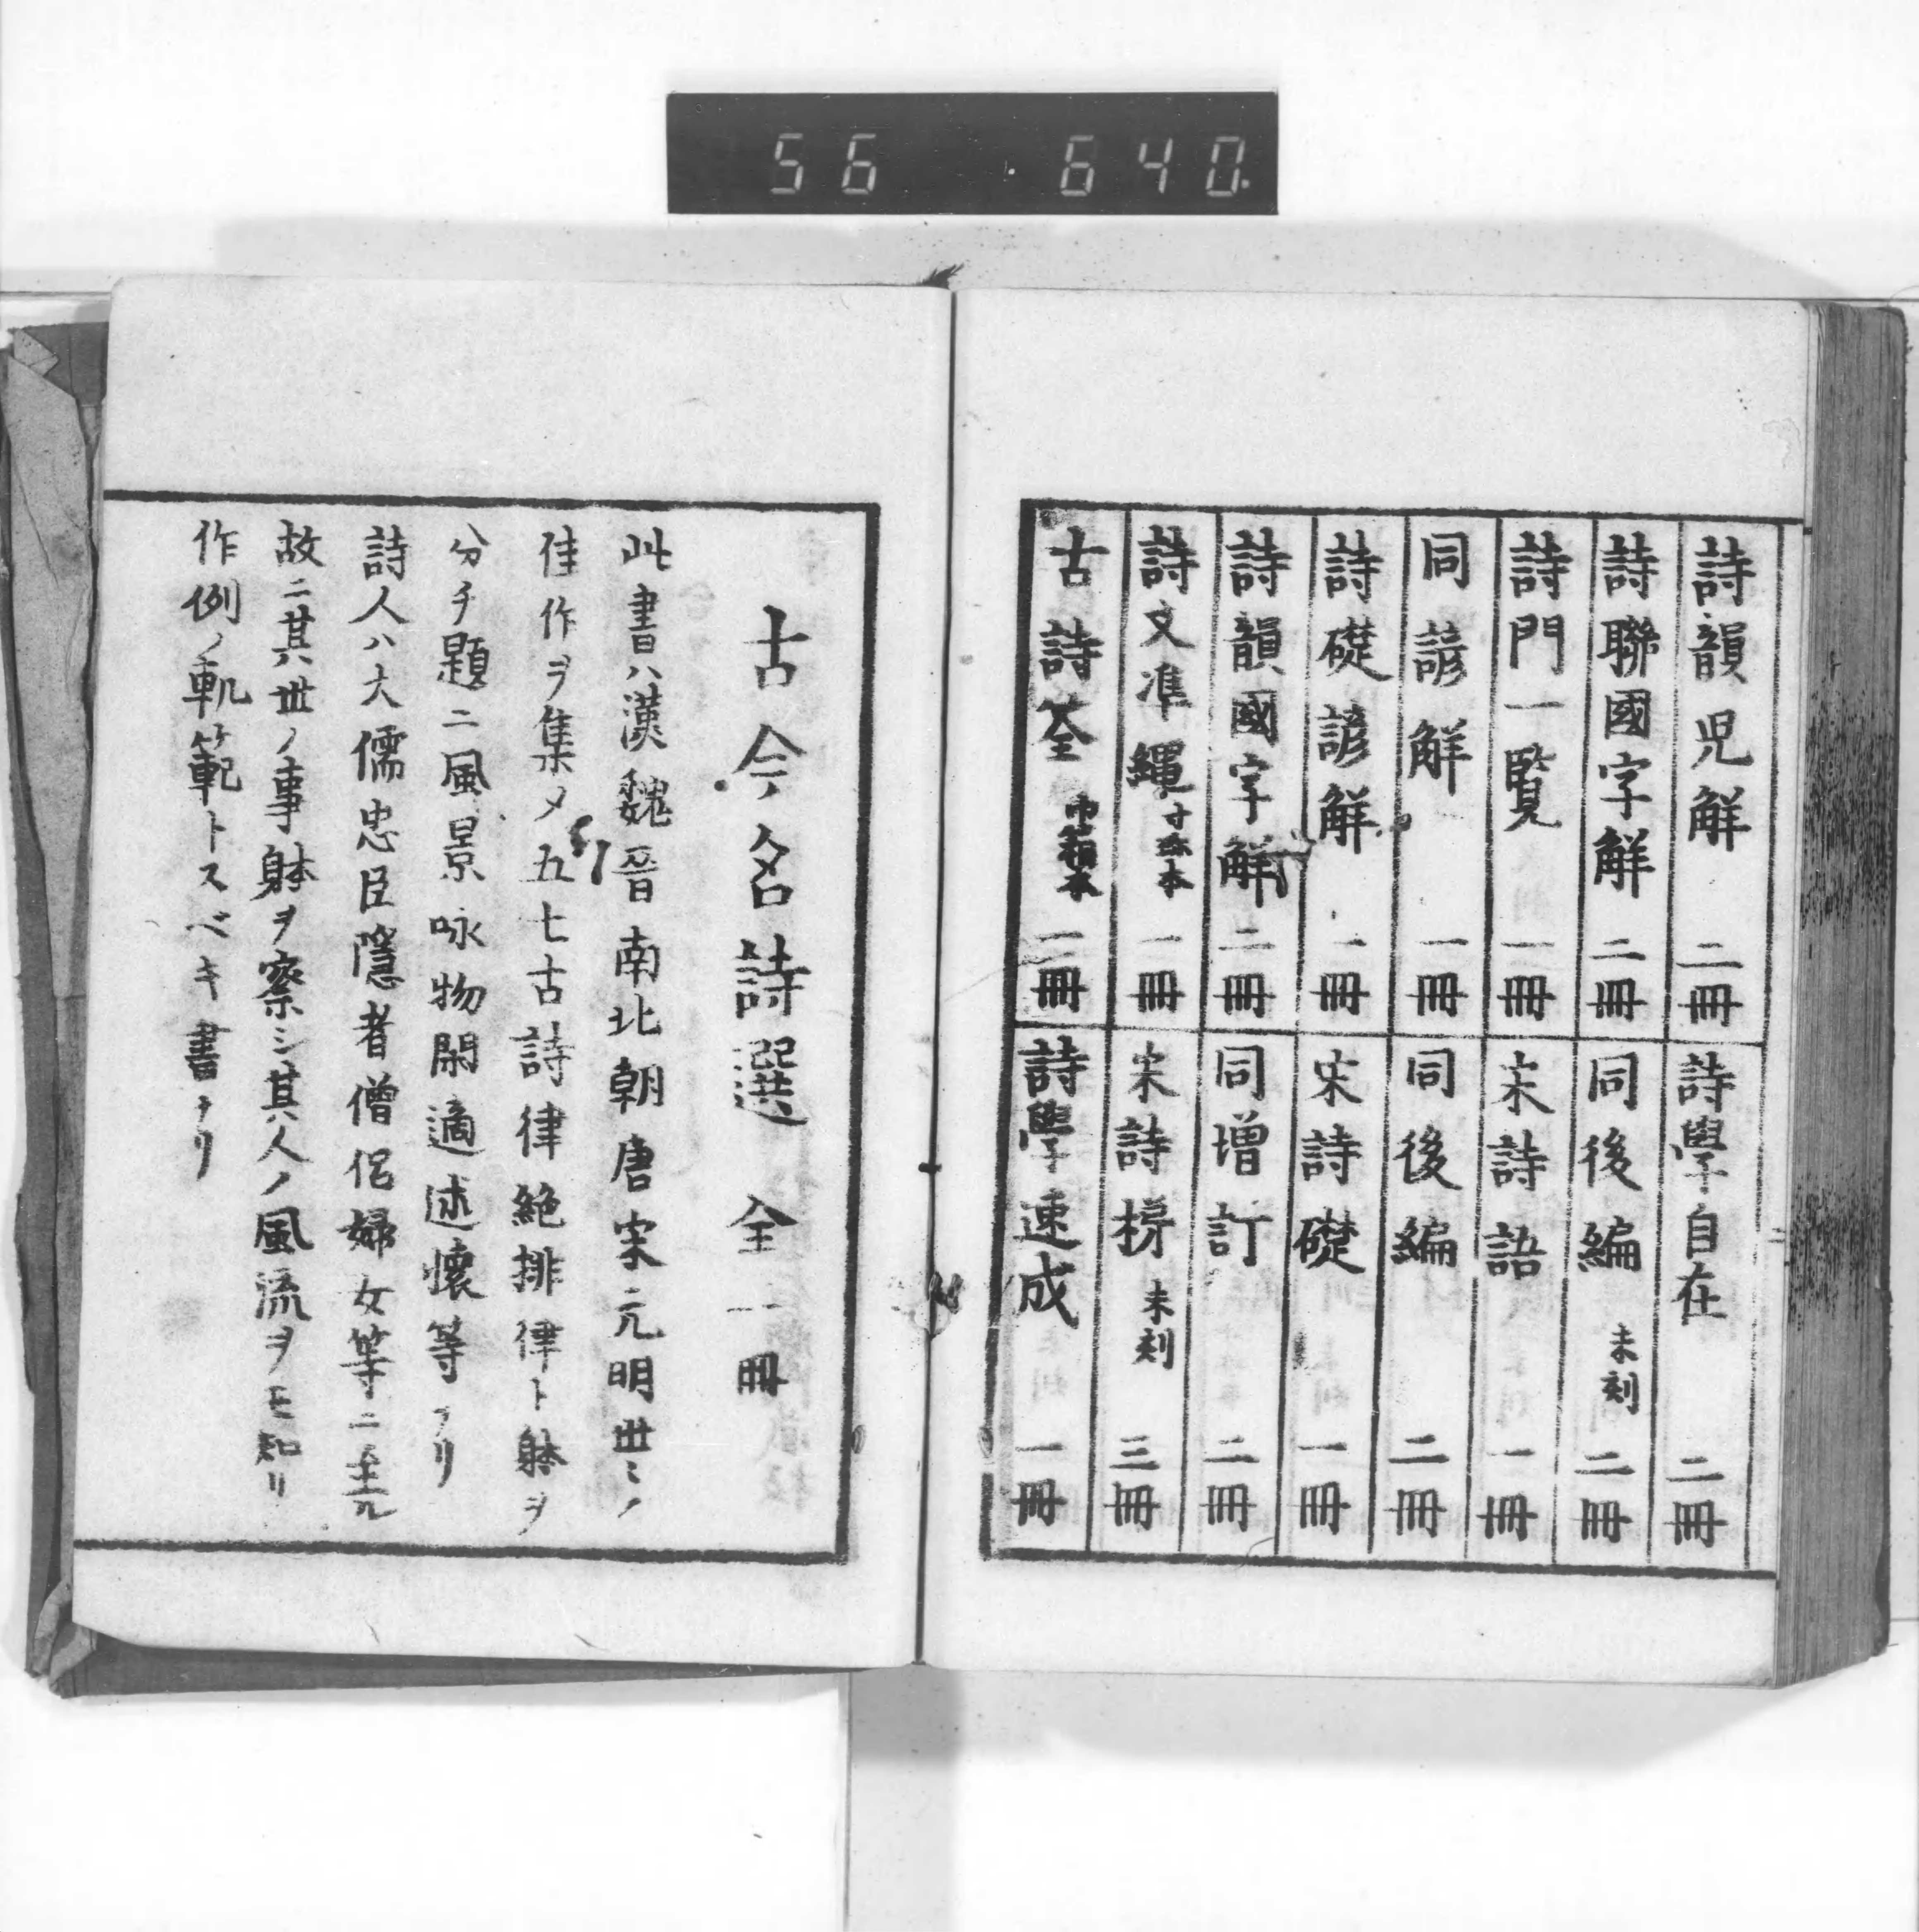 56 640
詩韻児解 二冊
詩聯國字解 二冊
詩門一覧 一冊
同諺解 一冊
詩礎諺解 一冊
詩韻國字解 二冊
詩文準縄 一冊
古詩筌 一冊
詩學自在 二冊
同後編 未刻 二冊
宋詩語 一冊
同後編 二冊
宋詩礎 一冊
同増訂 二冊
宋詩榜 未刻 三冊
詩學速成 一冊
古今名詩選 全一冊
此書ハ漢魏晉南北朝唐宋元明世々ノ
佳作ヲ集メ五七古詩律絶排律ト躰ヲ
分チ題ニ風景咏物閑適述懐等アリ
詩人ハ大儒忠臣隱者僧侶婦女等ニ至ル
故ニ其世ノ事躰ヲ察シ其人ノ風流ヲモ知リ
作例ノ軌範トスベキ書ナリ